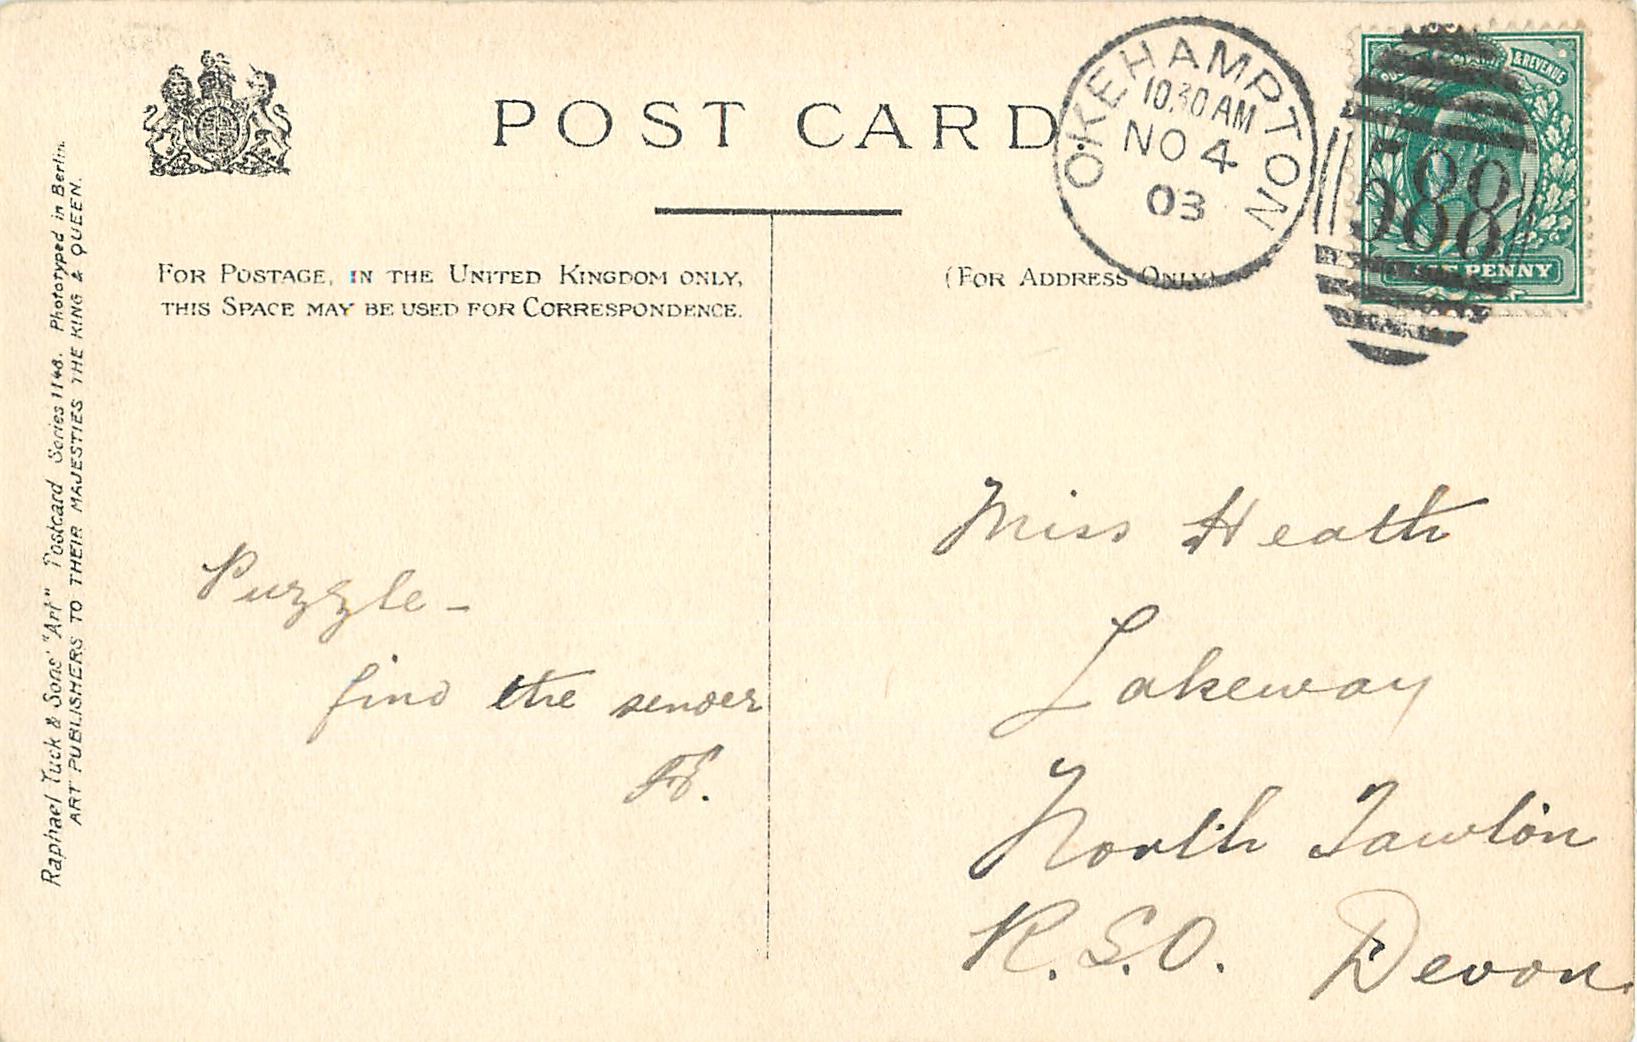 POST CARD
FOR POSTAGE, IN THE UNITED KINGDOM ONLY,
THIS SPACE MAY BE USED FOR CORRESPONDENCE.
(FOR ADDRESS ONLY)
OKEHAMPTON
10.30 AM
NO 4
03
588
& REVENUE
PENNY
Raphael Tuck & Sons' "Art" Postcard Series 1148. Phototyped in Berlin.
ART PUBLISHERS TO THEIR MAJESTIES THE KING & QUEEN.
Puzzle -
find the sender
Miss Heath
Lakeway
North Tawton
R.S.O. Devon.